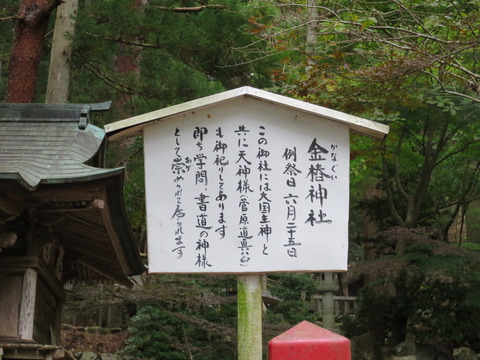 かなぐい
金樁神社
例祭日 六月二十五日
この御社には大国主神と
共に天神様(菅原道真公)
も御祀りしてあります
即ち学問、書道の神様
あが
として崇められて居られます